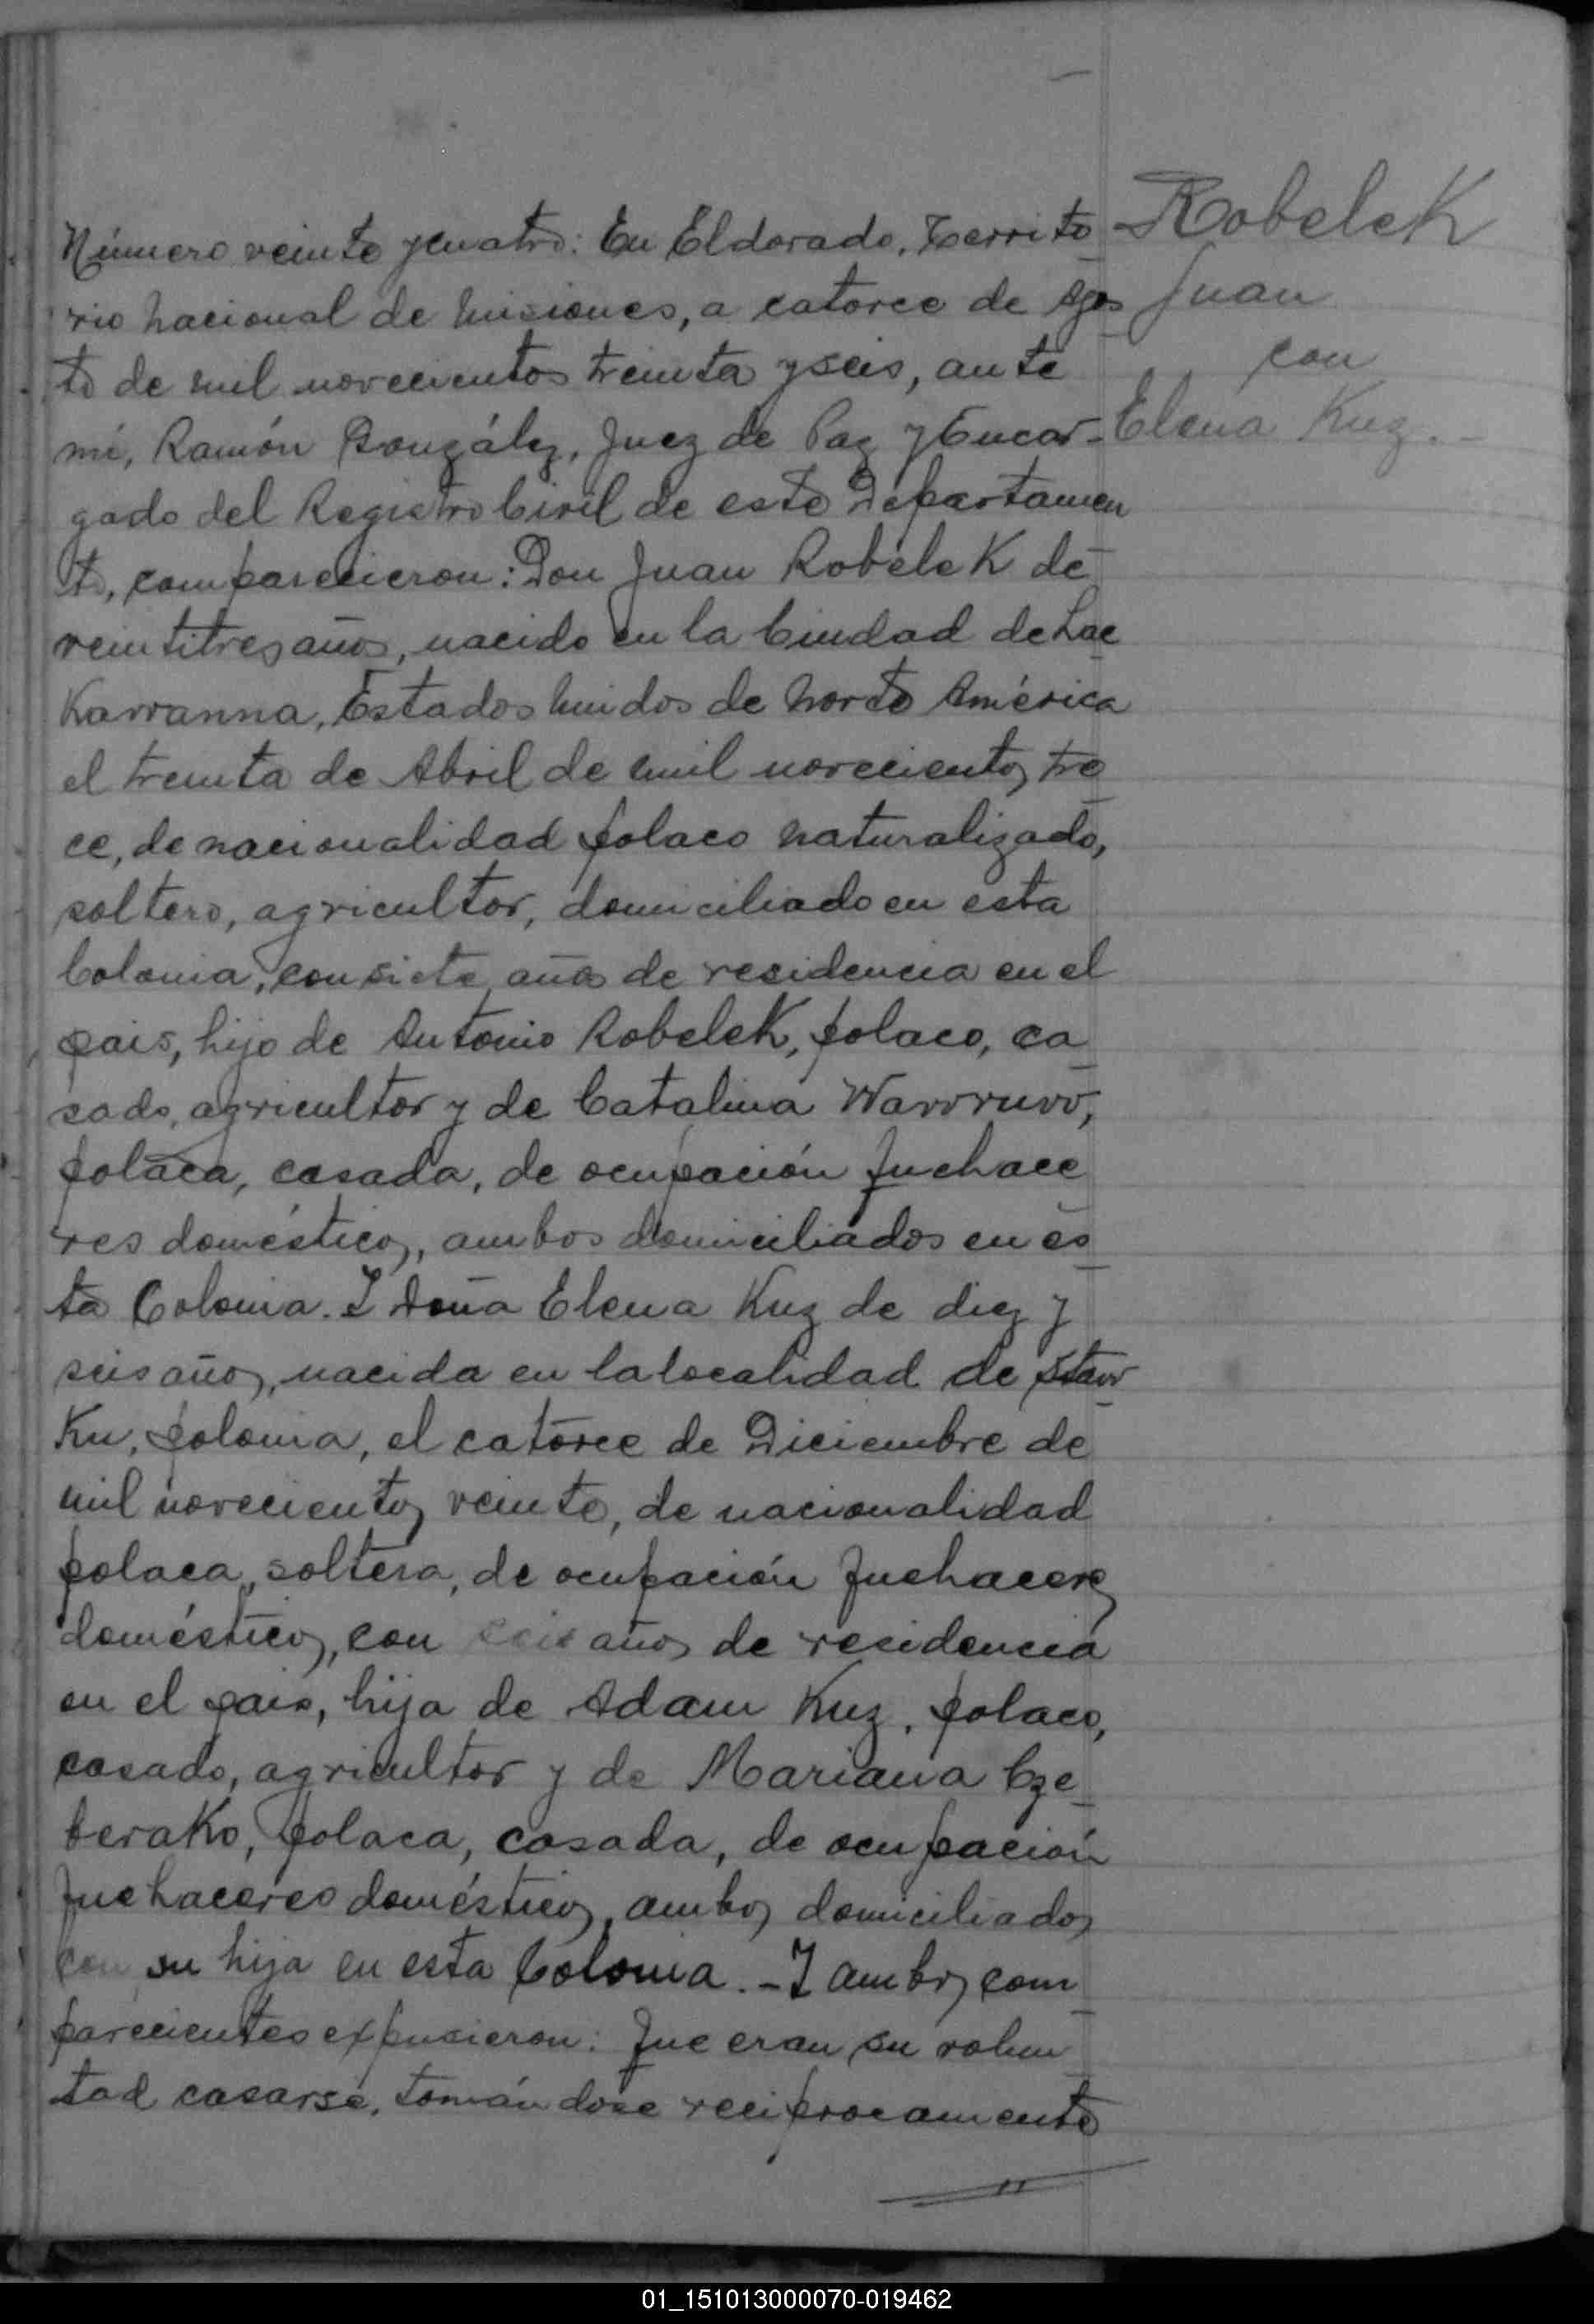 Robelek
Juan
con
Elena Kuz.-
Número veinte y cuatro: En Eldorado, Territo
rio nacional de Misiones, a catorce de Agos
to de mil novecientos treinta y seis, ante
mi, Ramón González, Juez de Paz y Encar-
gado del Registro Civil de este Departamen
to, comparecieron: Don Juan Robelek de
veintitres años, nacido en la Ciudad de Lac
Kavvanna, Estados Unidos de Norte América
el treinta de Abril de mil novecientos tre
ce, de nacionalidad polaco naturalizado,
soltero, agricultor, domiciliado en esta
Colonia, con siete años de residencia en el
pais, hijo de Antonio Robelek, polaco, ca
sado, agricultor y de Catalina
polaca, casada, de ocupación quehace
res domésticos, ambos domiciliados en es
ta Colonia. I doña Elena Kuz de diez y
seis años, nacida en la localidad de Stavv
Ku, Polonia, el catorce de Diciembre de
mil novecientos veinte, de nacionalidad
polaca, soltera, de ocupación quehaceres
domésticos, con seis años de residencia
en el pais, hija de Adam Kuz, polaco,
casado, agricultor y de Mariana Cze
berako, polaca, casada, de ocupación
quehaceres domésticos, ambos domiciliados
con su hija en esta Colonia.-I ambos com
parecientes expusieron: Que eran su volun
tad casarse, tomándose reciprocamente
01_151013000070-019462